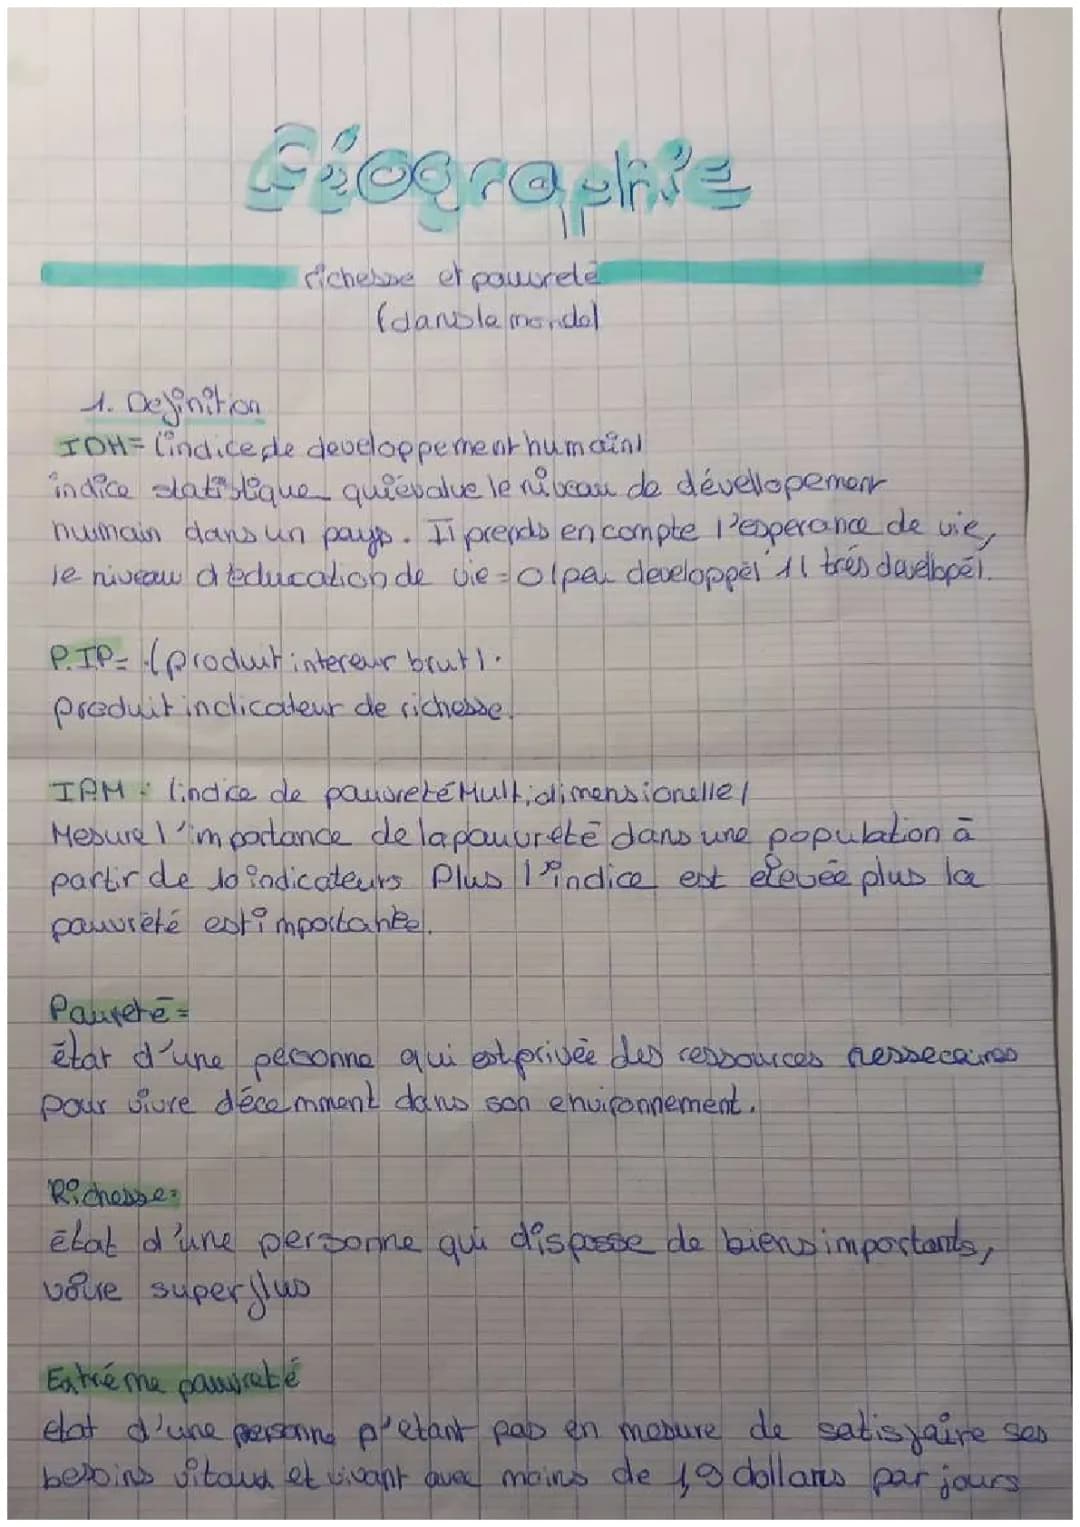 Géographie
richesse et pauvreté
(dans le monde)
1. Definition
IDH= (indice de developpement humain)
indice statistique qui évalue le niveau de dévellopement
humain dans un pays. Il prends en compte l'esperance de vie,
le niveau d'éducation de vie = 0(peu developpé) 1( trés devellopé).
P.IP= (produit intereur brut).
produit indicateur de richesse.
IPM : (indice de pauvreté Multidimensionelle)
Mesure l'importance de la pauvreté dans une population à
partir de 10 indicateurs Plus l'indice est élevée plus la
pauvreté est importante.
Pauvreté=
état d'une personne qui est privée des ressources nessecaires
pour vivre décemment dans son environnement.
Richesse:
état d'une personne qui dispose de biens importants,
voire superflus
Extréme pauvreté
etat d'une personne n'etant pas en mesure de satisfaire ses
besoins vitaux et vivant avec moins de 1,9 dollars par jours